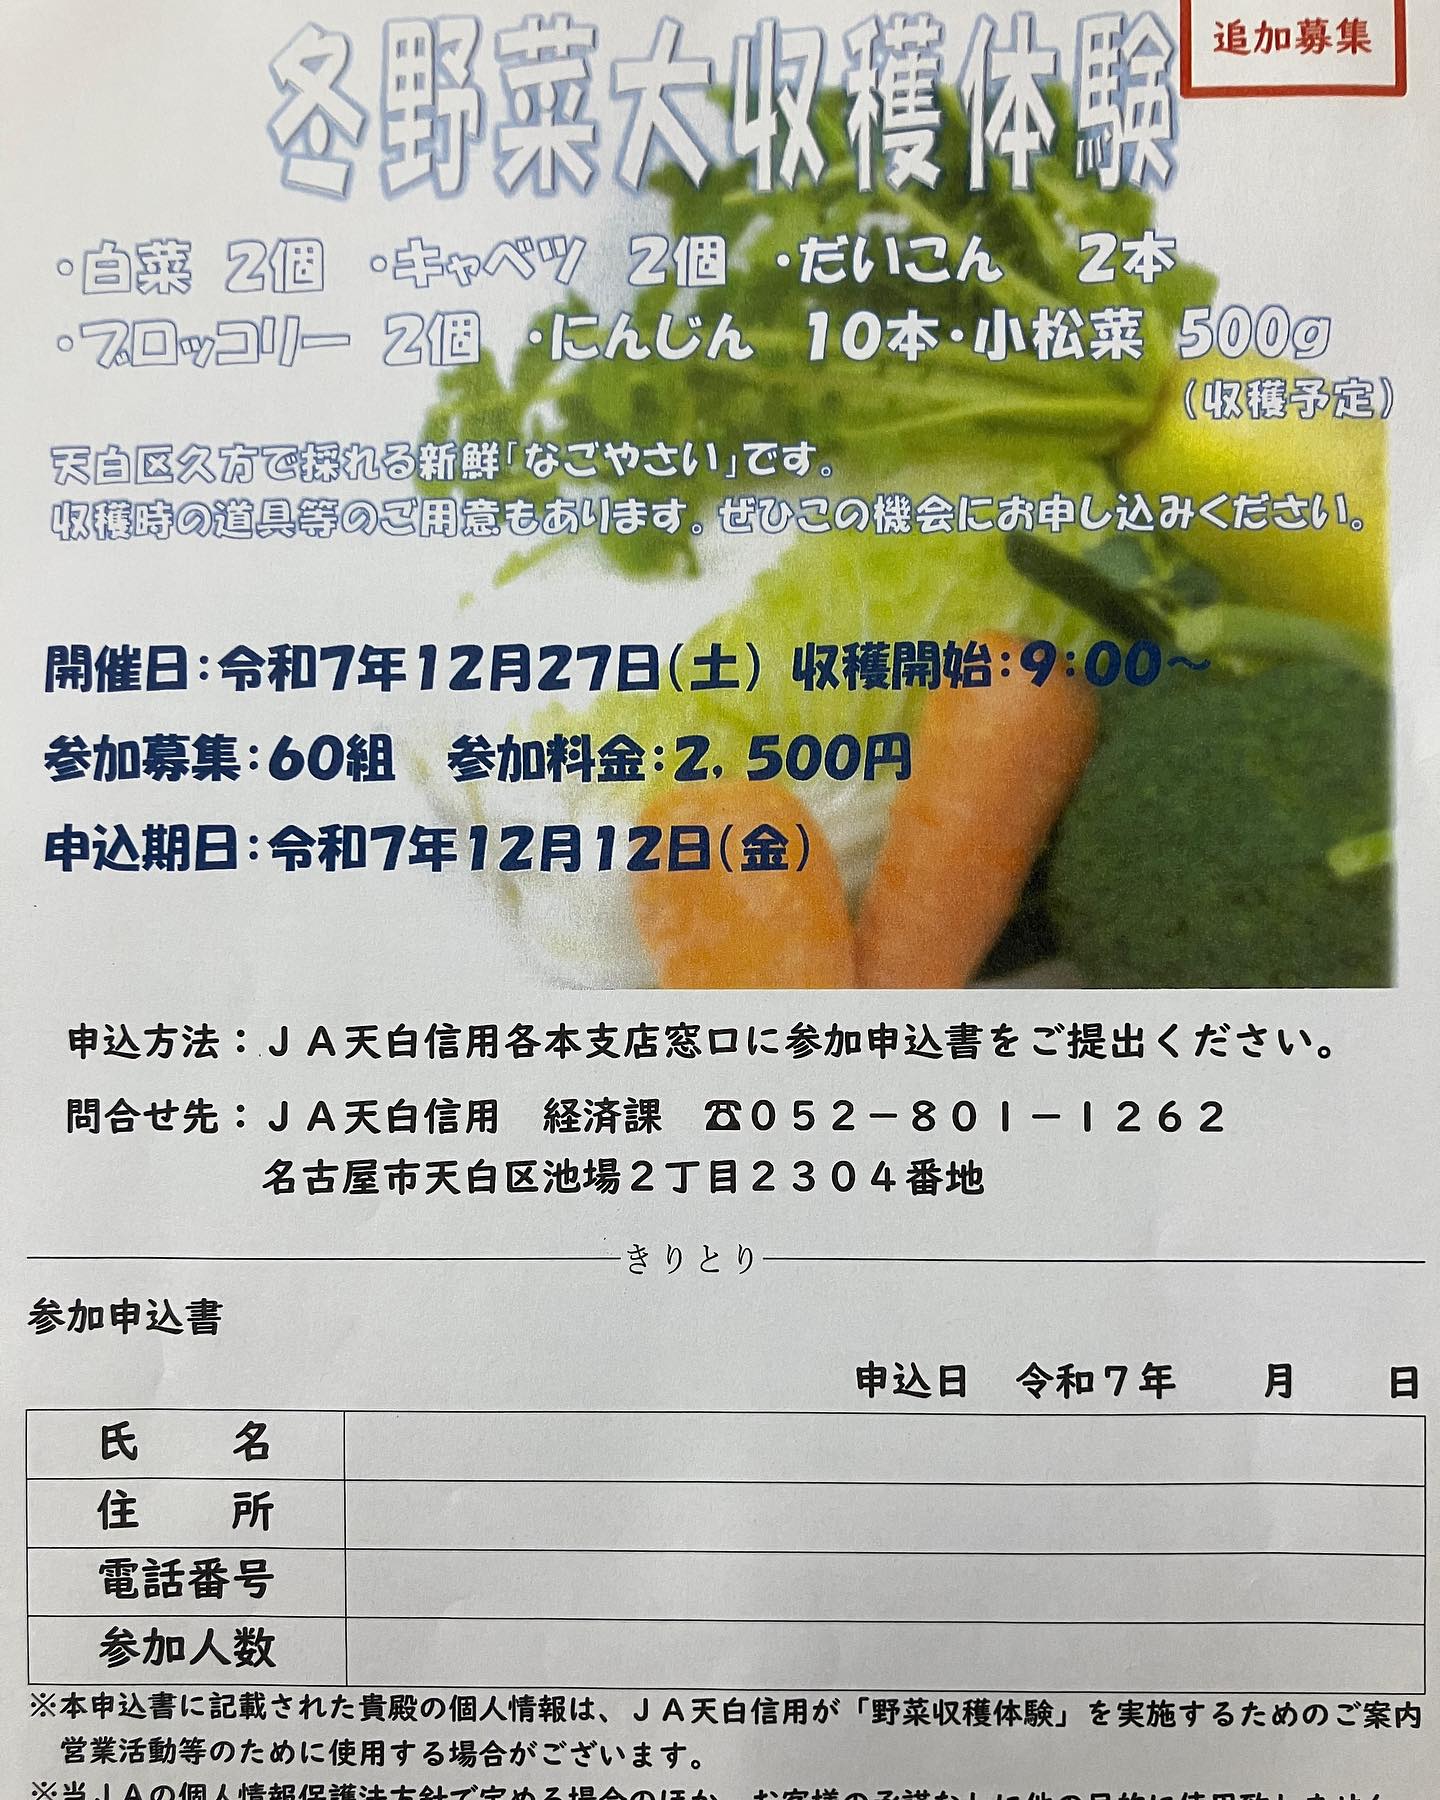 追加募集
冬野菜大収穫体験
・白菜 2個 ・キャベツ 2個 ・だいこん 2本
・ブロッコリー 2個 ・にんじん 10本・小松菜 500g
(収穫予定)
天白区久方で採れる新鮮「なごやさい」です。
収穫時の道具等のご用意もあります。ぜひこの機会にお申し込みください。
開催日:令和7年12月27日(土) 収穫開始:9:00~
参加募集:60組 参加料金:2,500円
申込期日:令和7年12月12日(金)
申込方法：ＪＡ天白信用各本支店窓口に参加申込書をご提出ください。
問合せ先：ＪＡ天白信用　経済課　☎０５２－８０１－１２６２
名古屋市天白区池場２丁目２３０４番地
きりとり
参加申込書
申込日　令和７年　　月　　日
氏　　名
住　　所
電話番号
参加人数
※本申込書に記載された貴殿の個人情報は、ＪＡ天白信用が「野菜収穫体験」を実施するためのご案内
営業活動等のために使用する場合がございます。
※当ＪＡの個人情報保護法方針で定める場合のほか、お客様の承諾なしに他の目的に使用致しません。